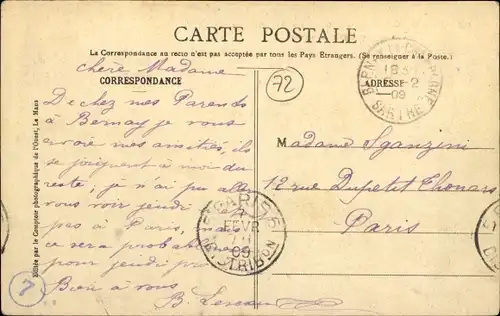 CARTE POSTALE
La Correspondance au recto n'est pas acceptée par tous les Pays Etrangers. (Se renseigner à la Poste.)
chère Madame
CORRESPONDANCE
De chez mes Parents
à Bernay je vous
envoie mes amitiés, ils
se joignent à moi du
reste, je n'ai pu aller
vous voir jeudi
pas à Paris, mais
ce sera probablement
pour jeudi
Bien à vous
B.
72
7
ADRESSE
SARTHE
09
Madame Sganzini
12 rue Dupetit Thouars
Paris
PARIS
FEVR
09
Editée par le Comptoir photographique de l'Ouest, Le Mans